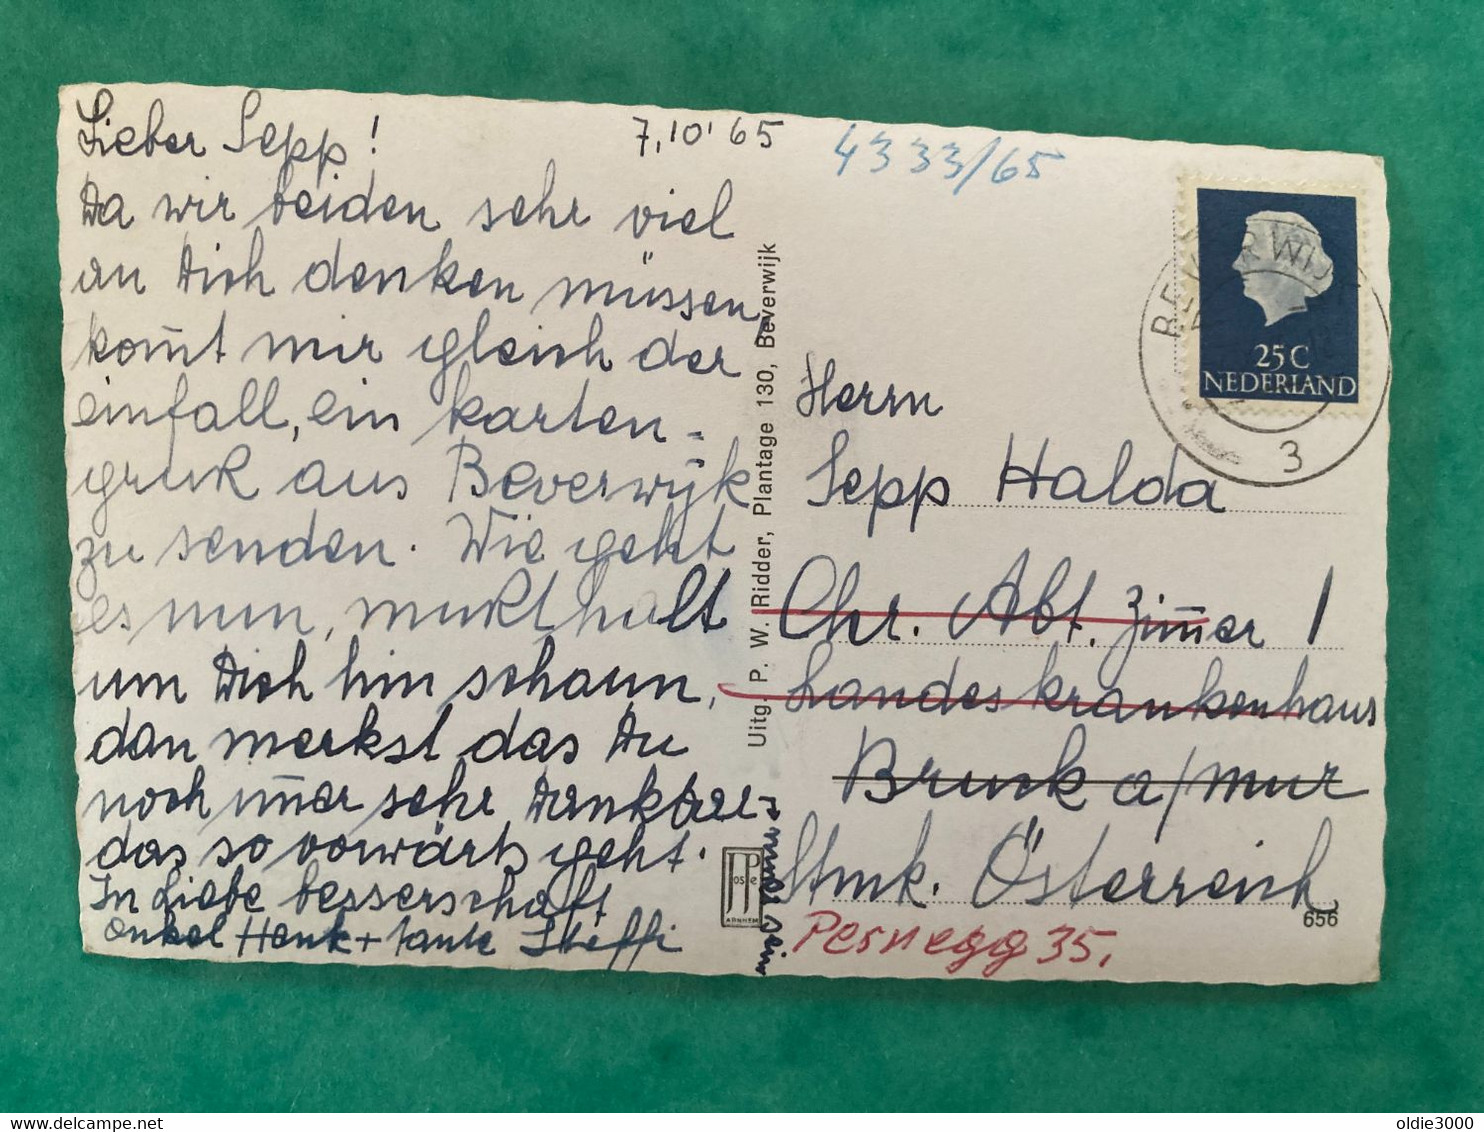 Lieber Sepp!
7.10'65
Da wir beiden sehr viel
an Dich denken müssen,
kom̄t mir gleich der
einfall, ein karten-
gruk aus Beverwijk
zu senden. Wie geht
es nun, mukt halt
um Dich hin schaun,
dan merkst das Du
noch im̄er sehr Dankbar
das so vorwärts geht.
In Liebe besserschaft
onkel Henk + tante Steffi
Uitg. P. W. Ridder, Plantage 130, Beverwijk
JOSPE
ARNHEM
4333/65
BEVERWIJK
3
25 C
NEDERLAND
Herrn
Sepp Halda
Chr. Abt. Zim̄er 1
Landeskrankenhaus
Bruck a/mur
Stmk. Österreich
656
Pernegg 35.
oldie3000